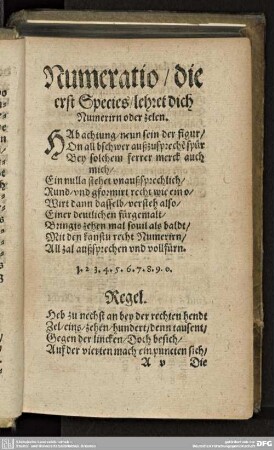 Numeratio/die
erst Species/lehret dich
Numerirn oder zelen.
HAb achtung/neun sein der figur/
On all bschwer außzusprechē spür
Bey solchem ferrer merck auch
mich/
Ein nulla stehet vnaußsprechlich/
Rund vnd gformirt recht wie ein o/
Wirt dann dasselb/versteh also/
Einer deutlichen fürgemalt/
Bringts zehen mal souil als baldt/
Mit den kanstu recht Numerirn/
All zal außsprechen vnd vollfürn.
1. 2 3. 4. 5. 6. 7. 8. 9. 0.
Regel.
Heb zu nechst an bey der rechten hendt
Zel/eins/zehen/hundert/denn tausent/
Gegen der lincken/Doch besich/
Auf der vierten mach ein puncten sich/
A v Die